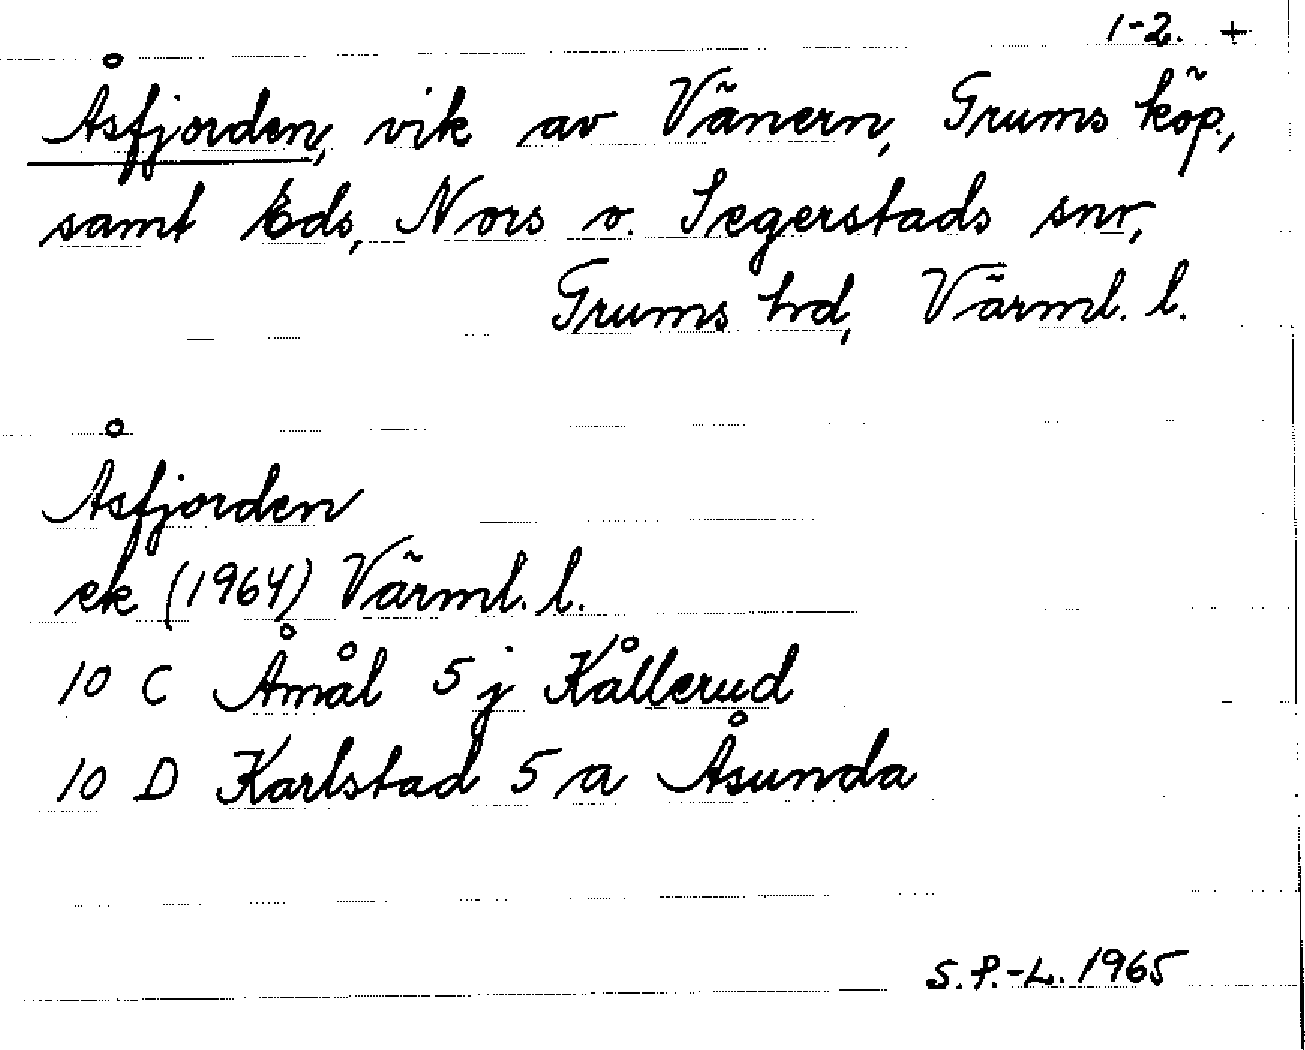 1-2. +
Åsfjorden, vik av Vänern, Grums köp.,
samt Eds, Nors o. Segerstads snr,
Grums hd, Värml. l.
Åsfjorden
ek (1964) Värml. l.
10 C Åmål 5 j Kållerud
10 D Karlstad 5 a Åsunda
S.P.-L. 1965